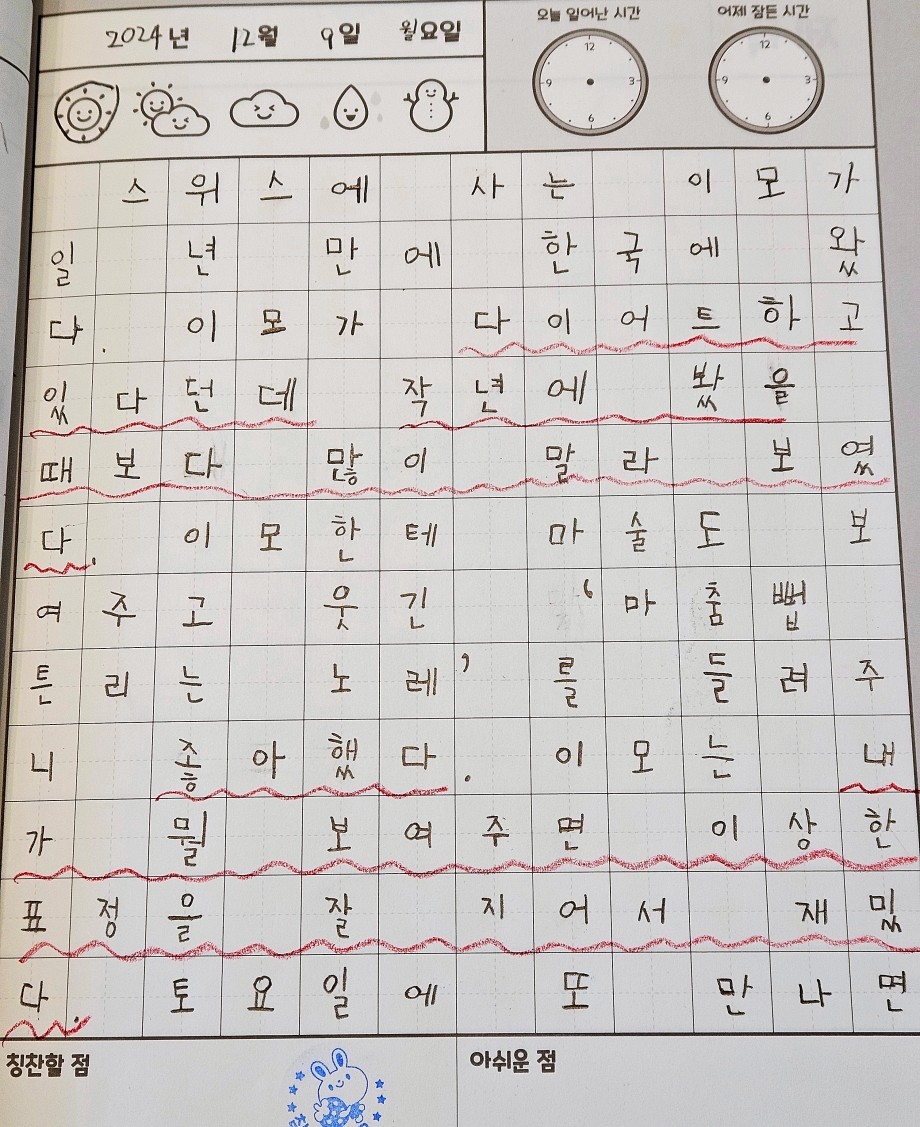 2024년 12월 9일 월요일
오늘 일어난 시간 어제 잠든 시간
12 12
9 3 9 3
6 6
스위스에 사는 이모가
일 년 만에 한국에 왔
다. 이모가 다이어트하고
있다던데 작년에 봤을
때보다 많이 말라 보였
다. 이모한테 마술도 보
여주고 웃긴 ‘마춤뻡
튼리는 노레’를 들려주
니 좋아했다. 이모는 내
가 뭘 보여주면 이상한
표정을 잘 지어서 재밌
다. 토요일에 또 만나면
칭찬할 점 아쉬운 점